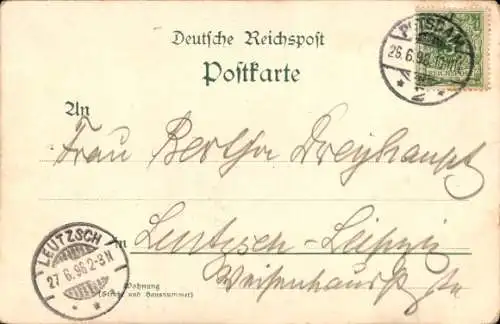 Deutsche Reichspost
Postkarte
POTSDAM
26.6.98.
* 2 *
REICHSPOST
An
Frau Bertha Dreyhaupt
in Leutzsch-Leipzig
Waisenhausstr
LEUTZSCH
27.6.98.2-3N
* *
Wohnung
(Straße und Hausnummer)